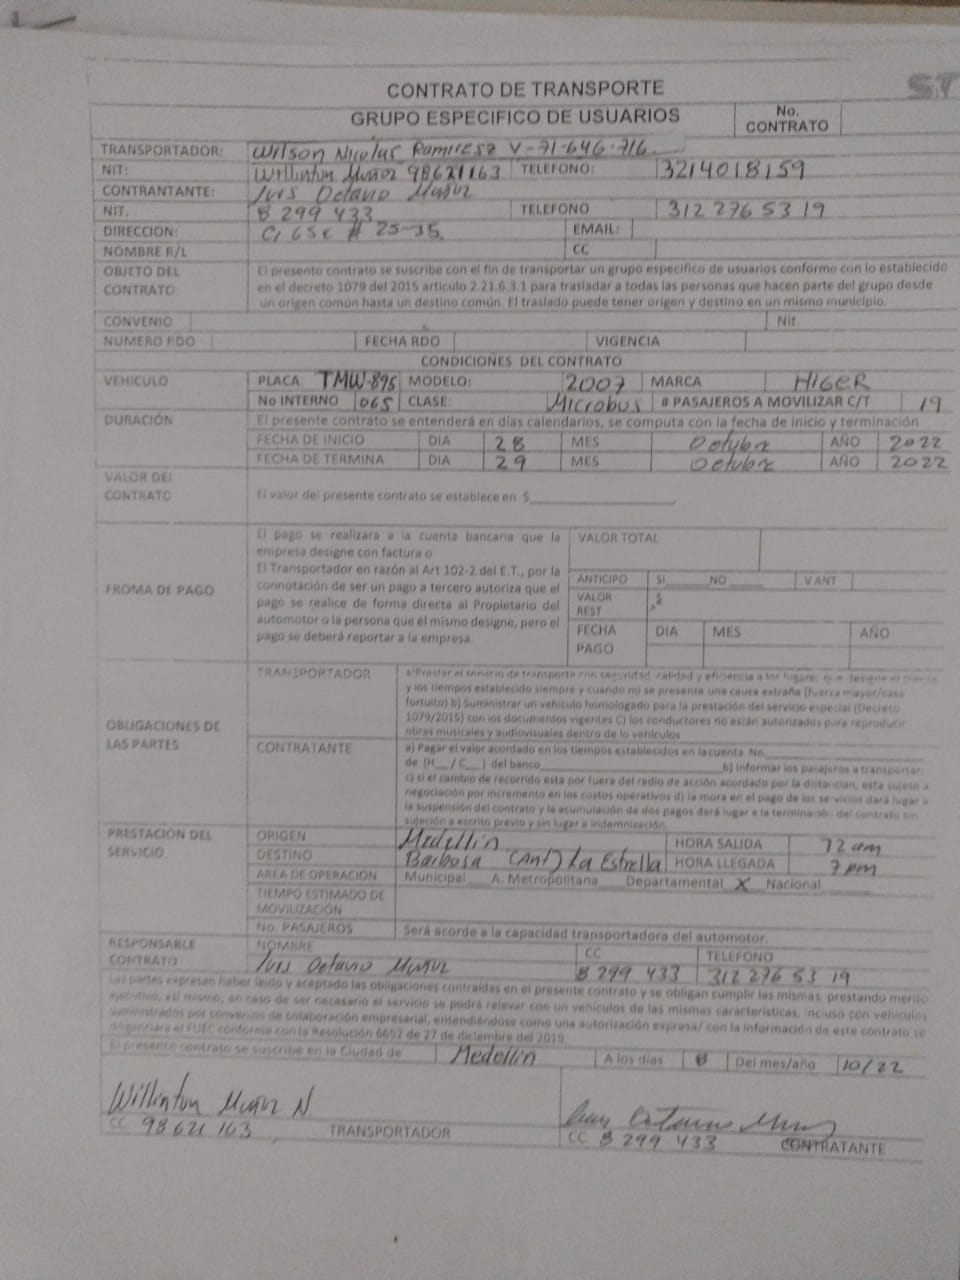 CONTRATO DE TRANSPORTE
GRUPO ESPECIFICO DE USUARIOS
No. CONTRATO
TRANSPORTADOR: Wilson Nicolas Ramirez V-71-646-716
NIT: Willinton Muñoz 98621163 TELEFONO: 3214018159
CONTRANTANTE: Luis Octavio Muñoz
NIT. 8 299 433 TELEFONO 312 276 53 19
DIRECCION: # 25-35 EMAIL:
NOMBRE R/L CC
OBJETO DEL CONTRATO:
El presento contrato se suscribe con el fin de transportar un grupo especifico de usuarios conforme con lo establecido
en el decreto 1079 del 2015 articulo 2.21.6.3.1 para trasladar a todas las personas que hacen parte del grupo desde
un origen común hasta un destino común. El traslado puede tener origen y destino en un mismo municipio.
CONVENIO Nit.
NUMERO RDO FECHA RDO VIGENCIA
CONDICIONES DEL CONTRATO
VEHICULO PLACA: TMW-895 MODELO: 2007 MARCA HIGER
No INTERNO 065 CLASE: Microbus # PASAJEROS A MOVILIZAR C/T 19
DURACIÓN El presente contrato se entenderá en días calendarios, se computa con la fecha de inicio y terminación
FECHA DE INICIO DIA 28 MES Octubre AÑO 2022
FECHA DE TERMINA DIA 29 MES Octubre AÑO 2022
VALOR DEL CONTRATO El valor del presente contrato se establece en $
FROMA DE PAGO
El pago se realizara a la cuenta bancaria que la
empresa designe con factura o
El Transportador en razón al Art 102-2 del E.T., por la
connotación de ser un pago a tercero autoriza que el
pago se realice de forma directa al Propietario del
automotor o la persona que él mismo designe, pero el
pago se deberá reportar a la empresa.
VALOR TOTAL
ANTICIPO SI NO V ANT
VALOR REST $
FECHA PAGO DIA MES AÑO
OBLIGACIONES DE LAS PARTES
TRANSPORTADOR
a)Prestar el servicio de transporte con seguridad, calidad y eficiencia a los lugares que designe el cliente
y los tiempos establecido siempre y cuando no se presente una causa extraña (fuerza mayor/caso
fortuito) b) Suministrar un vehiculo homologado para la prestación del servicio especial (Decreto
1079/2015) con los documentos vigentes C) los conductores no están autorizados para reproducir
obras musicales y audiovisuales dentro de lo vehiculos
CONTRATANTE
a) Pagar el valor acordado en los tiempos establecidos en la cuenta No.
de (H__/ C__ ) del banco b) Informar los pasajeros a transportar;
c) si el cambio de recorrido esta por fuera del radio de acción acordado por la distancian, esta sujeto a
negociación por incremento en los costos operativos d) la mora en el pago de los servicios dará lugar a
la suspensión del contrato y la acumulación de dos pagos dará lugar a la terminación del contrato sin
sujeción a escrito previo y sin lugar a indemnización.
PRESTACIÓN DEL SERVICIO
ORIGEN Medellin HORA SALIDA 12 am
DESTINO Barbosa (Ant) La Estrella HORA LLEGADA 7 pm
AREA DE OPERACIÓN Municipal A. Metropolitana Departamental X Nacional
TIEMPO ESTIMADO DE MOVILIZACIÓN
No. PASAJEROS Será acorde a la capacidad transportadora del automotor.
RESPONSABLE CONTRATO NOMBRE CC TELEFONO
Luis Octavio Muñoz 8 299 433 312 276 53 19
Las partes expresan haber leido y aceptado las obligaciones contraidas en el presente contrato y se obligan cumplir las mismas, prestando merito
ejecutivo, así mismo, en caso de ser necesario el servicio se podrá relevar con un vehiculos de las mismas características, incluso con vehiculos
suministrados por convenios de colaboración empresarial, entendiéndose como una autorización expresa/ con la información de este contrato se
diligenciara el FUEC conforme con la Resolución 6652 de 27 de diciembre del 2019.
El presente contrato se suscribe en la Ciudad de Medellin A los días 8 Del mes/año 10/22
Willinton Muñoz N
CC 98 621 163 TRANSPORTADOR
CC 8 299 433 CONTRATANTE